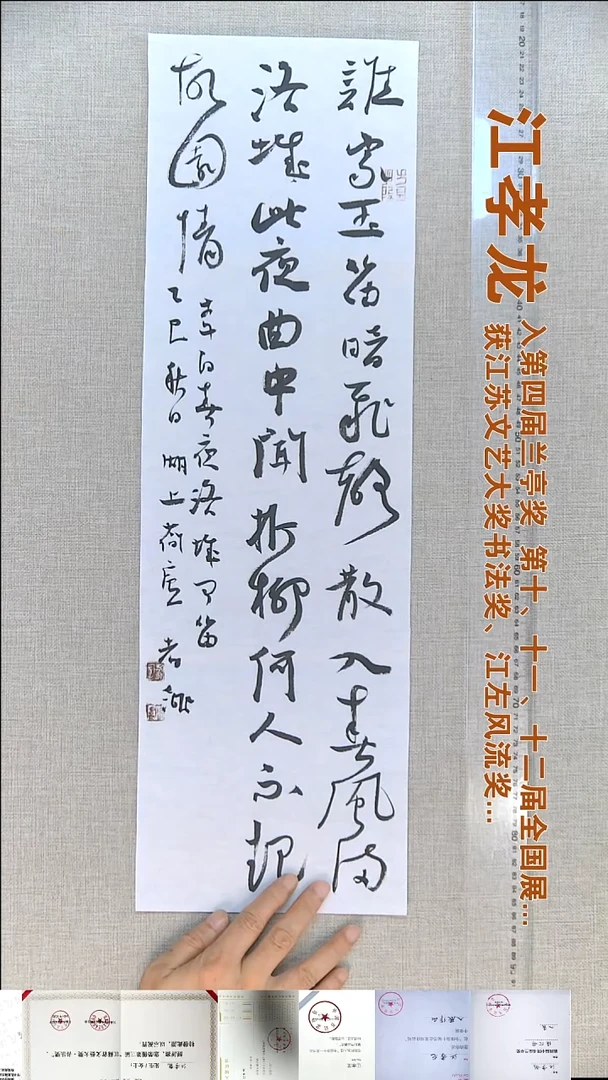 誰家玉笛暗飛聲散入春風滿
洛城此夜曲中聞折柳何人不起
故園情
李白春夜洛城聞笛
乙巳秋日湖上
孝龍
江孝龙
入第四届兰亭奖 第十、十一、十二届全国展...
获江苏文艺大奖书法奖、江左风流奖...